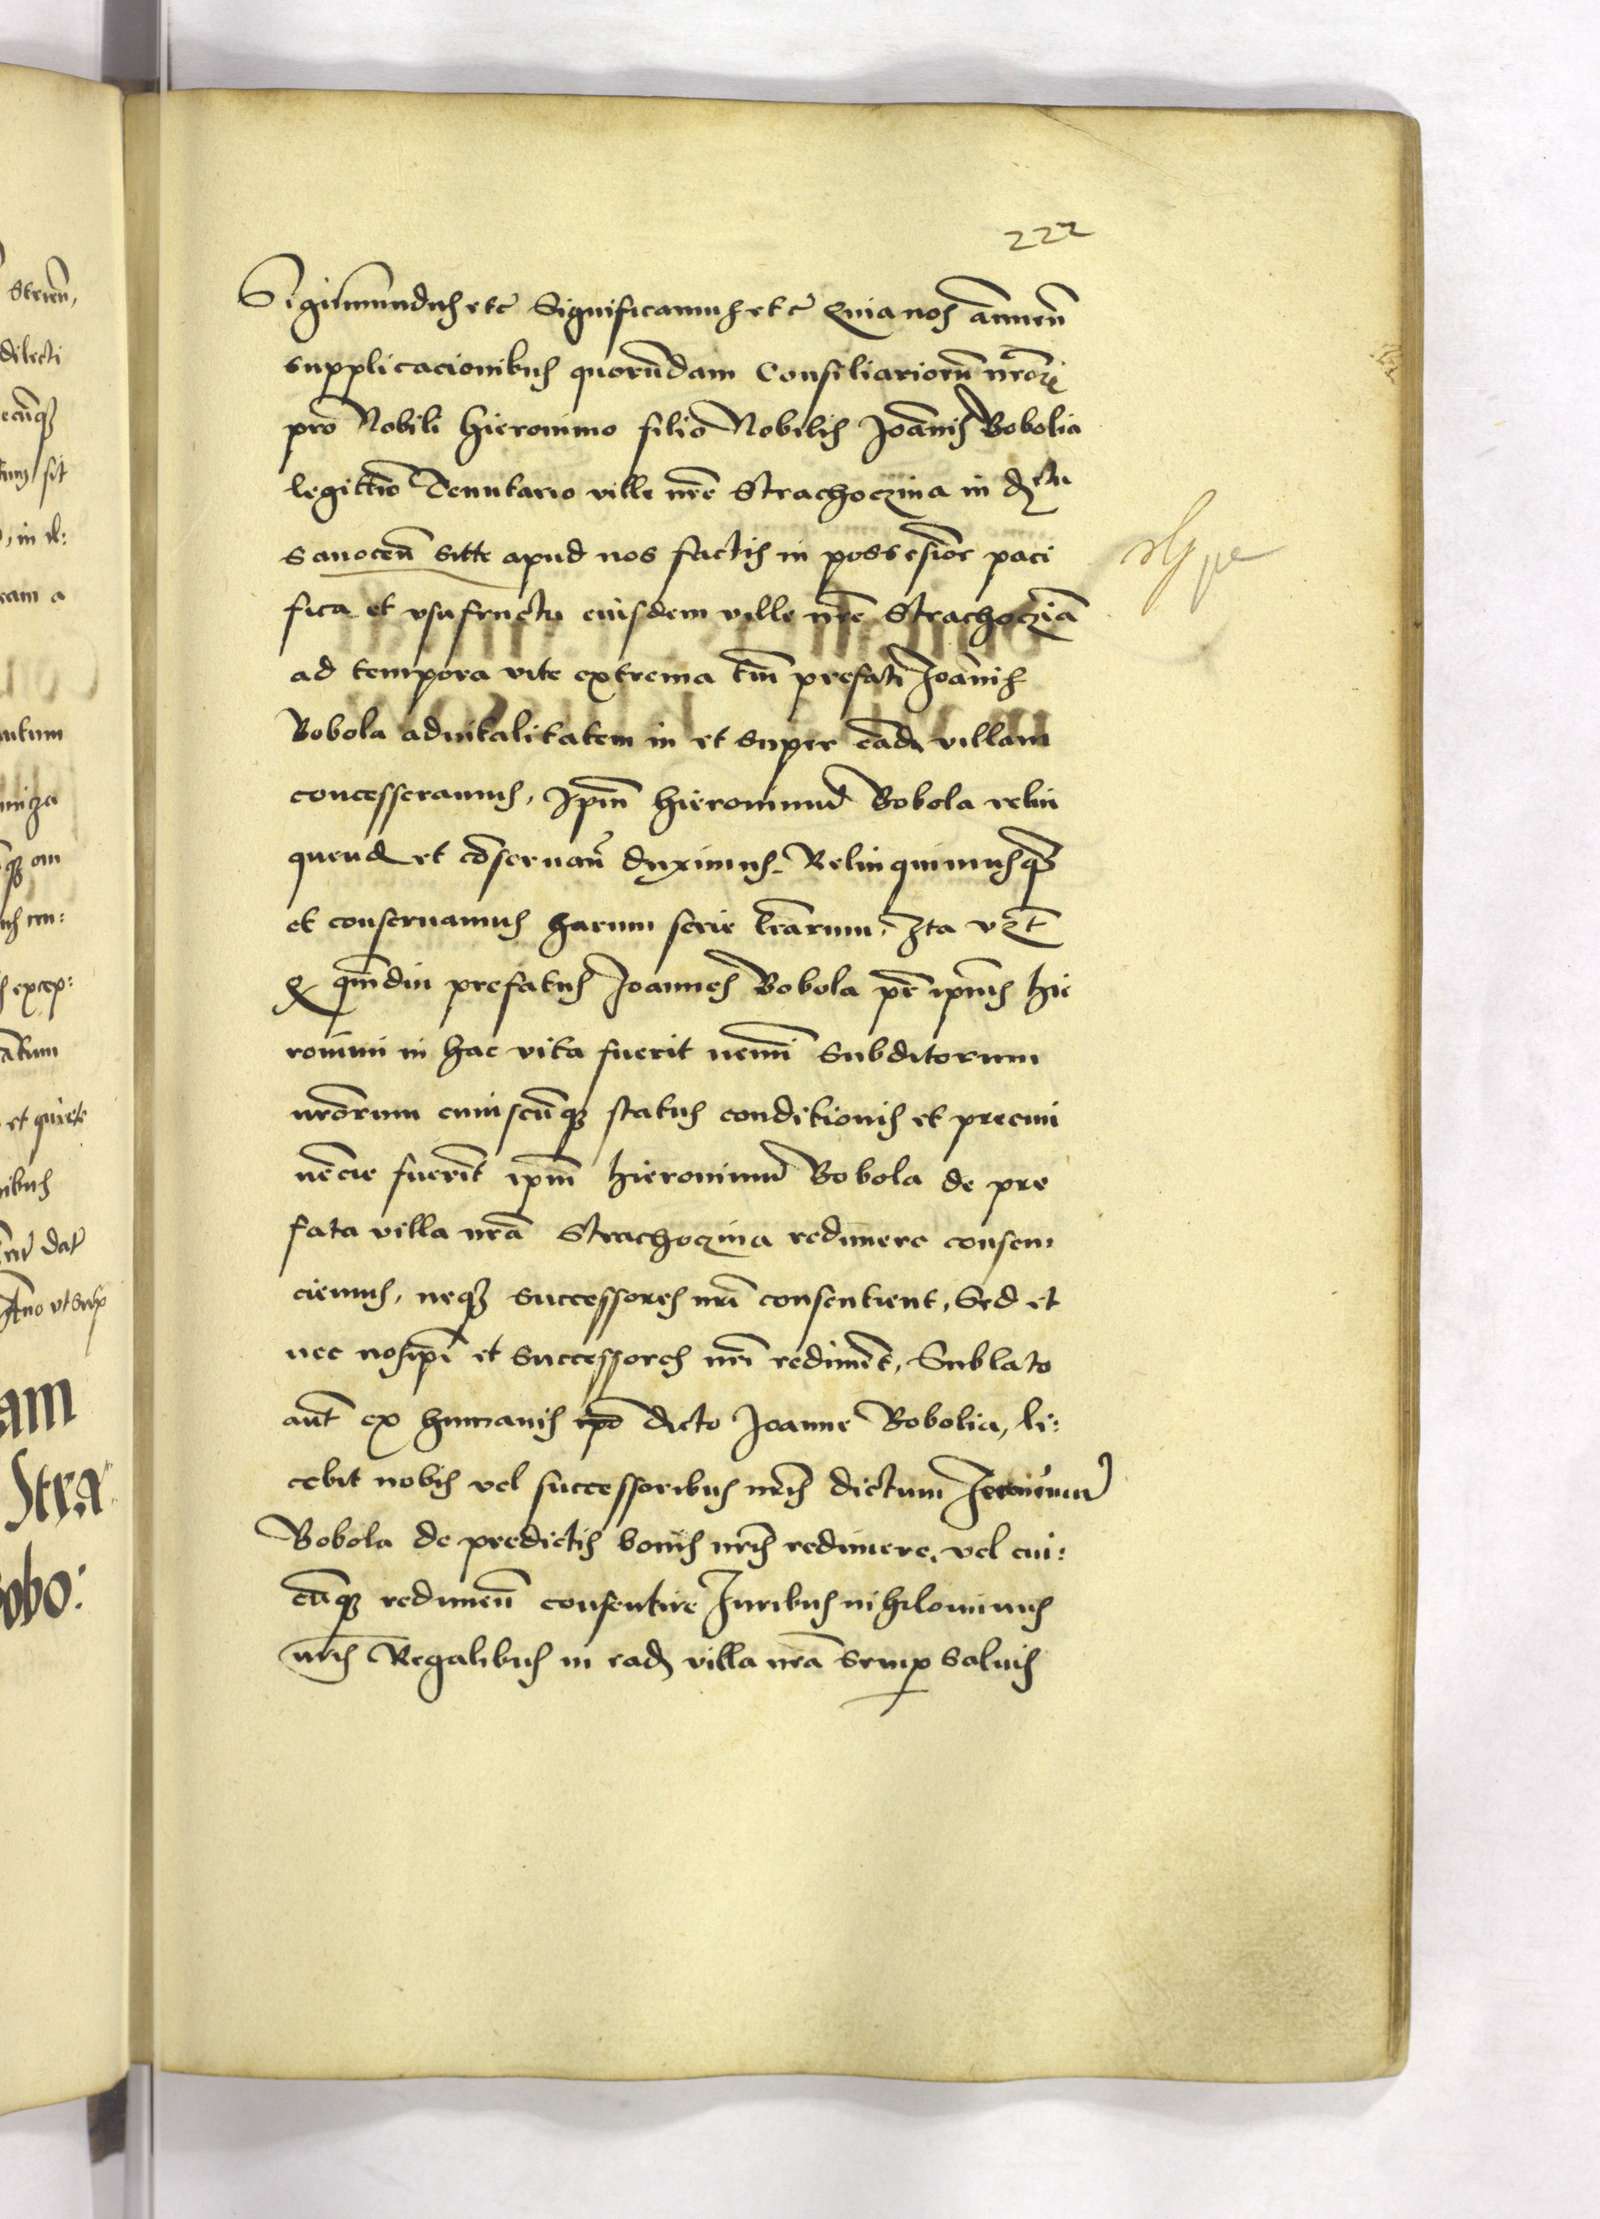 222
Sigismundus etc Significamus etc Quia nos annuen̄
supplicacionibus quorūdam Consiliariorū nr̄or
pro Nobili Hieronimo filio Nobilis Joānis Bobolia
legittīo Tenutario ville nr̄e Strachoczina in dctu
Sanocen̄ Sitte apud nos factis in possessiōe paci
fica et vsufructu eiusdem ville nr̄e Strachoczinā
ad tempora vite extrema tm̄ prefati Joānis
Bobola aduitalitatem in et super eād villam
concesseramus, Ipm̄ Hieronimū Bobola relin
quend et cōseruan̄ duximus. Relinquimusq3
et conseruamus harum serie lr̄arum, Ita vzt̄
q qm̄diu prefatus Joannes Bobola pr̄ ipīus Hie
ronimi in hac vita fuerit nemī subditorum
nr̄orum cuiuscūq3 status conditionis et preemi
nēcie fuerīt ipm̄ Hieronimū Bobola de pre
fata villa nr̄a Strachoczina redimere consen
ciemus, neq3 successores nr̄i consentient, Sed et
nec nosipī et Successores nr̄i rediment, Sublato
aut̄ ex humanis ipō dicto Joanne Bobolia, li:
cebit nobis vel successoribus nr̄is dictum Jeronimū
Bobola de predictis bonis nr̄is redimere, vel cui:
cūq3 redimen̄ consentire Juribus nihilominus
nr̄is Regalibus in ead villa nr̄a semp saluis
Strien̄,
dilecti
ecūq3
sit
, in il:
cam a
utum
niza
q3 om
excep:
atum
et quiete
nibus
dat
Āno vt supr
am
Stra
obo: